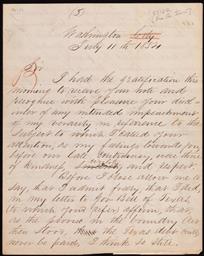 Washington City
July 11th 1854
Sir
I had the gratification this
morning to receive your note and
perceive with pleasure your dis-
of any intended impeachment
of my veracity in reference to the
subject to which I called your
attention, as my feelings towards you
before our late were
of kindness and respect.
Before I close allow me to
say, that I admit freely that I had,
in my letter to you Bill of Texas,
to which you refer affirm, that,
as the above in the country
then stood, the Texas debt would
never be paid, I think so still.